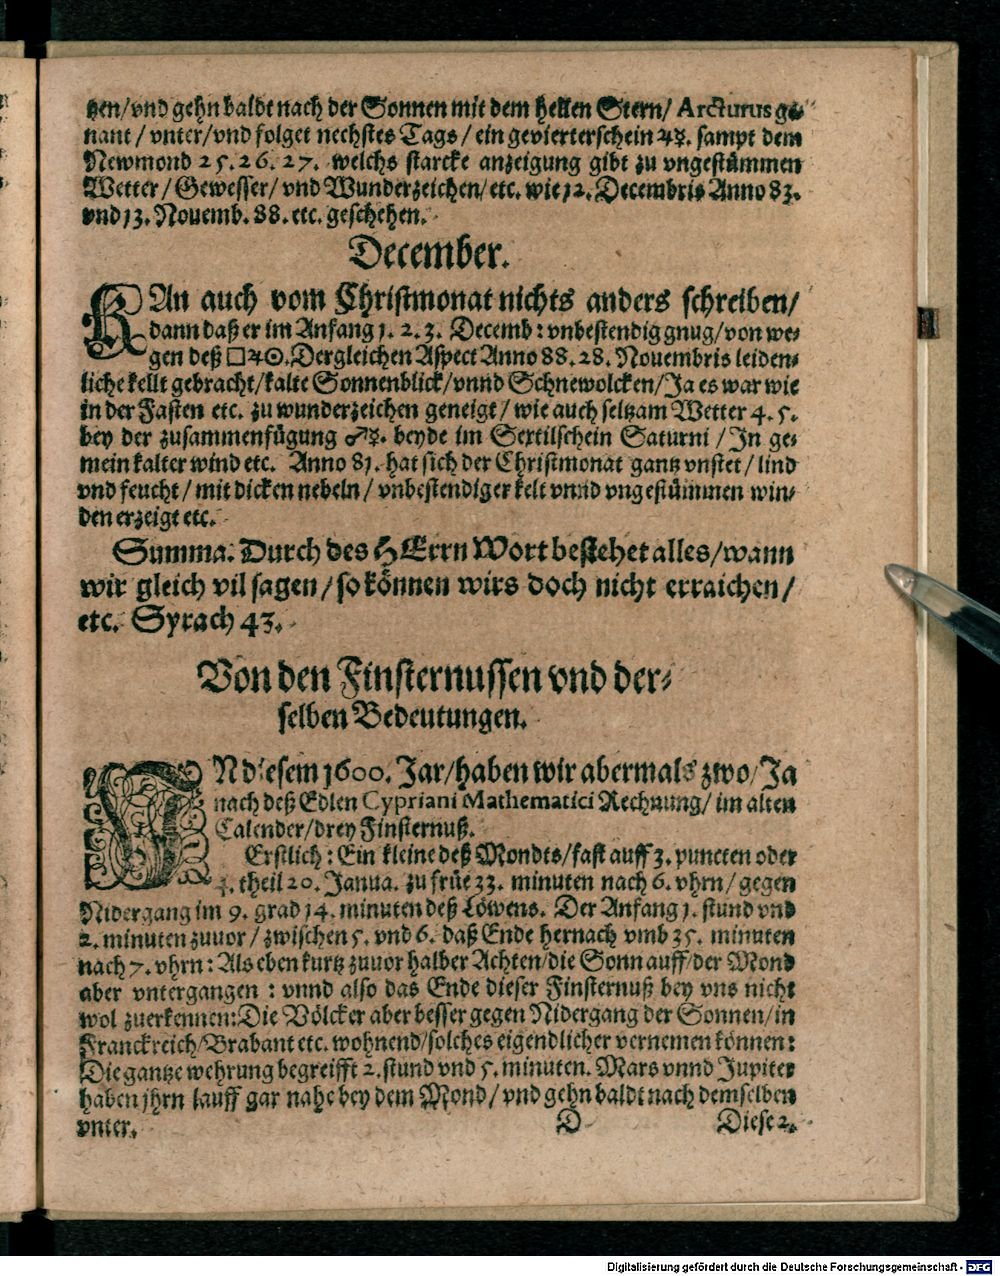 tzen/vnd gehn baldt nach der Sonnen mit dem hellen Stern/ Arcturus ge-
nant/ vnter/vnd folget nechstes Tags/ ein gevierterschein ♃☿. sampt dem
Newmond 25. 26. 27. welchs starcke anzeigung gibt zu vngestümmen
Wetter/ Gewesser/ vnd Wunderzeichen/ etc. wie 12. Decembris Anno 83.
vnd 13. Nouemb. 88. etc. geschehen.
December.
KAn auch vom Christmonat nichts anders schreiben/
dann daß er im Anfang 1. 2. 3. Decemb: vnbestendig gnug/ von we-
gen deß □♃☉. Dergleichen Aspect Anno 88. 28. Nouembris leiden-
liche kellt gebracht/ kalte Sonnenblick/ vnnd Schnewolcken/ Ja es war wie
in der Fasten etc. zu wunderzeichen geneigt/ wie auch seltzam Wetter 4. 5.
bey der zusammenfügung ♂☿. beyde im Sextilschein Saturni/ In ge-
mein kalter wind etc. Anno 81. hat sich der Christmonat gantz vnstet/ lind
vnd feucht/ mit dicken nebeln/ vnbestendiger kelt vnnd vngestümmen win-
den erzeigt etc.
Summa. Durch des HErrn Wort bestehet alles/ wann
wir gleich vil sagen/ so können wirs doch nicht erraichen/
etc. Syrach 43.
Von den Finsternussen vnd der-
selben Bedeutungen.
IN diesem 1600. Jar/ haben wir abermals zwo/ Ja
nach deß Edlen Cypriani Mathematici Rechnung/ im alten
Calender/ drey Finsternuß.
Erstlich: Ein kleine deß Mondts/ fast auff 3. puncten oder
theil 20. Janua. zu früe 33. minuten nach 6. vhrn/ gegen
Nidergang im 9. grad 14. minuten deß Löwens. Der Anfang 1. stund vnd
2. minuten zuuor/ zwischen 5. vnd 6. daß Ende hernach vmb 35. minuten
nach 7. vhrn: Als eben kurtz zuuor halber Achten/ die Sonn auff/ der Mond
aber vntergangen: vnnd also das Ende dieser Finsternuß bey vns nicht
wol zuerkennen: Die Völcker aber besser gegen Nidergang der Sonnen/ in
Franckreich/ Brabant etc. wohnend/ solches eigendlicher vernemen können:
Die gantze wehrung begreifft 2. stund vnd 5. minuten. Mars vnnd Jupiter
haben jhrn lauff gar nahe bey dem Mond/ vnd gehn baldt nach demselben
vnter.
D Diese 2.
Digitalisierung gefördert durch die Deutsche Forschungsgemeinschaft - DFG